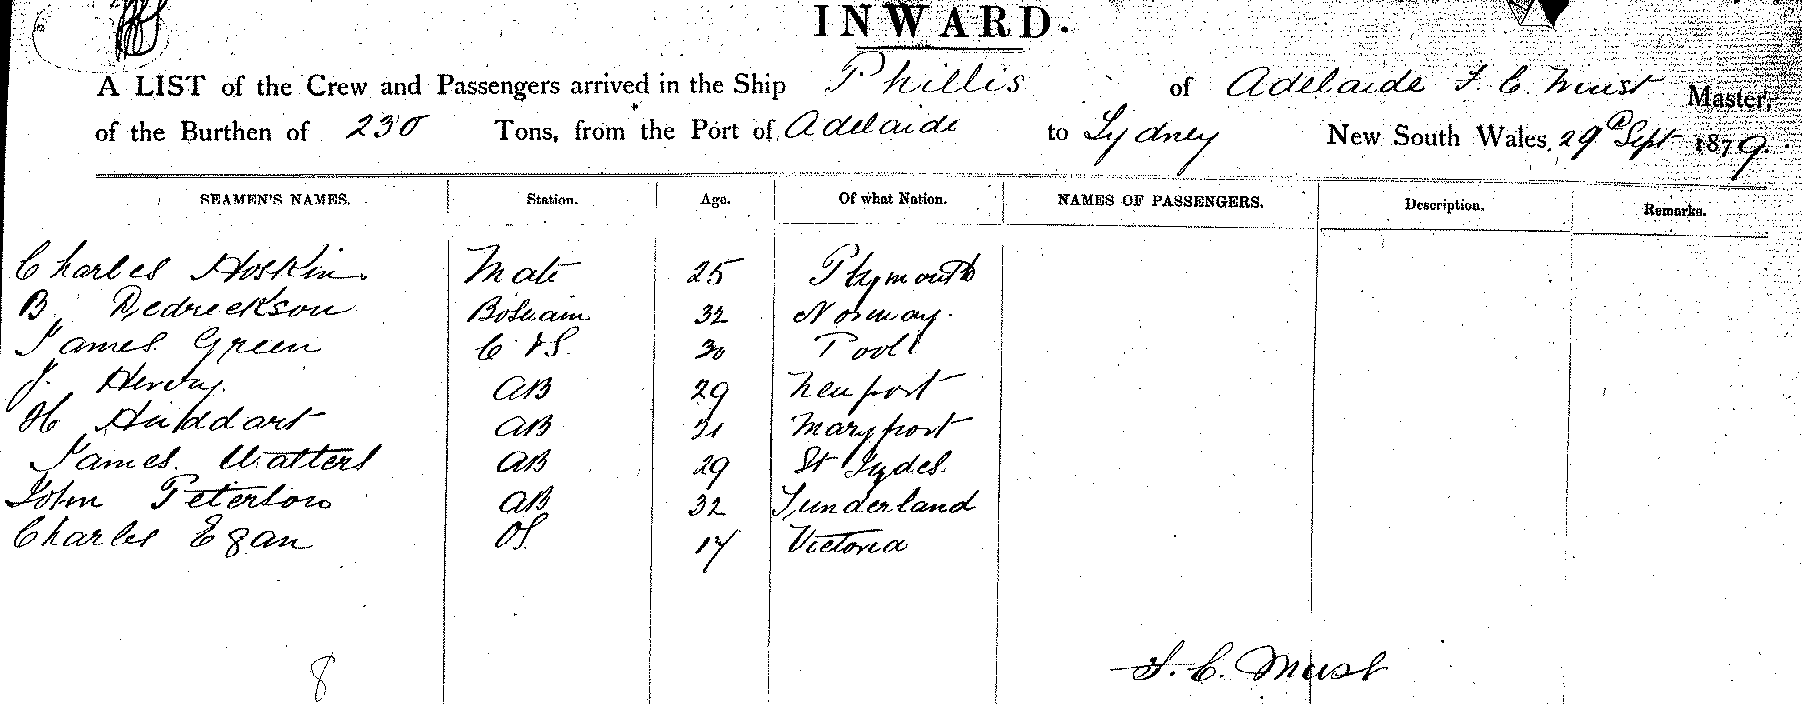 INWARD.
A LIST of the Crew and Passengers arrived in the Ship Phillis of Adelaide F. C. Must Master,
of the Burthen of 230 Tons, from the Port of Adelaide to Sydney New South Wales, 29th Sept 1879.
SEAMEN'S NAMES. Station. Age. Of what Nation. NAMES OF PASSENGERS. Description. Remarks.
Charles Hoskin Mate 25 Plymouth
B. Bosuain 32 Norway.
James Green C & S. 30 Pool
J. Hervy. AB 29 Newport
H Huddart AB 31 Maryport
James. Watters AB 29 St
John Peterson AB 32 Sunderland
Charles Egan OS. 17 Victoria
8 F. C. Must